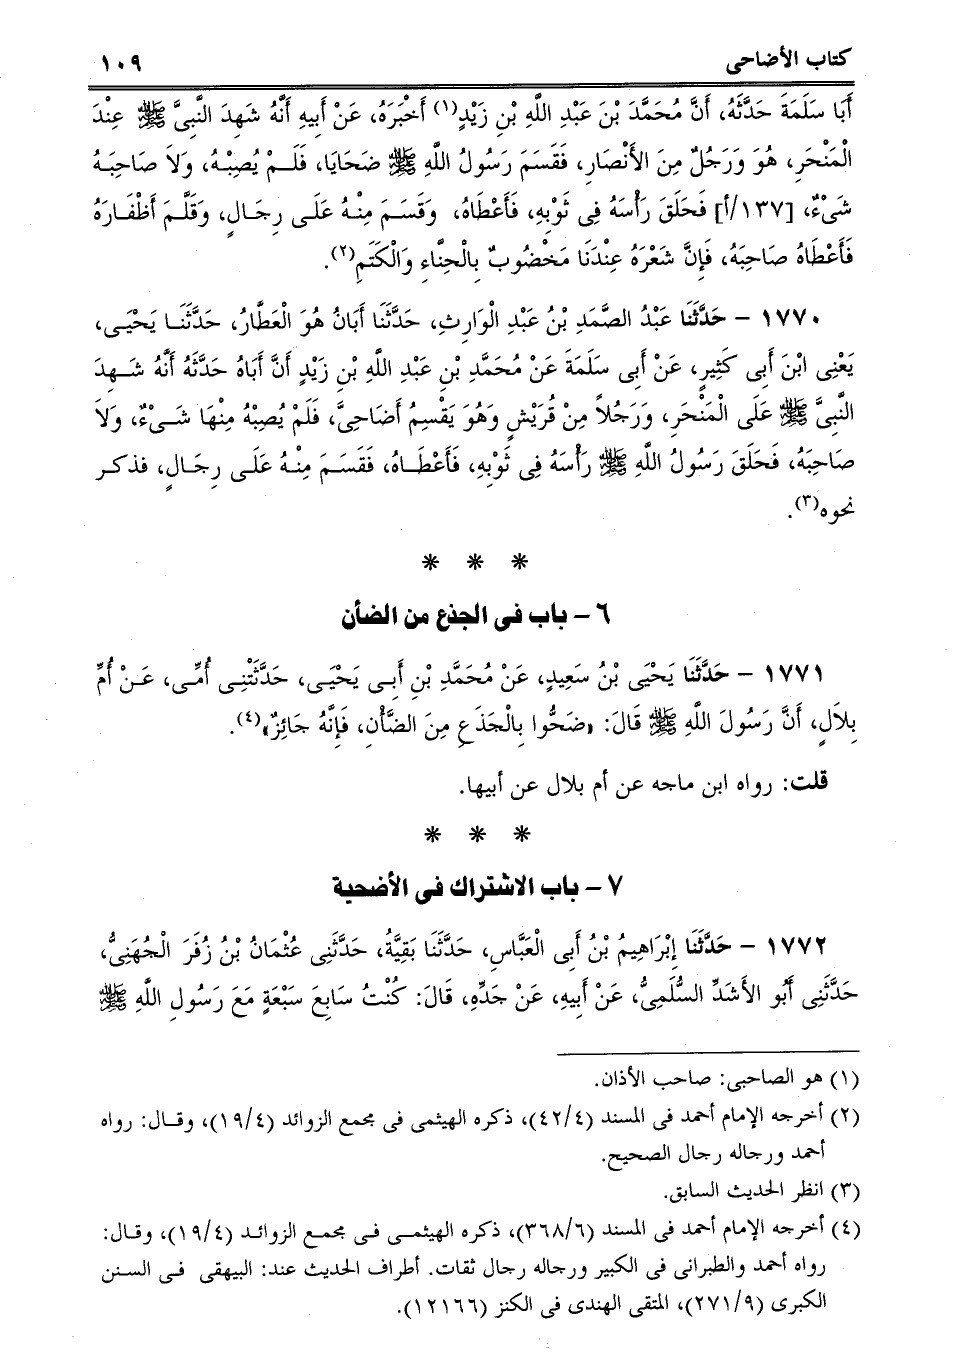 كتاب الأضاحى ١٠٩
أَبَا سَلَمَةَ حَدَّثَهُ، أَنَّ مُحَمَّدَ بْنَ عَبْدِ اللَّهِ بْنِ زَيْدٍ(١) أَخْبَرَهُ، عَنْ أَبِيهِ أَنَّهُ شَهِدَ النَّبِىَّ ﷺ عِنْدَ
الْمَنْحَرِ، هُوَ وَرَجُلٌ مِنَ الأَنْصَارِ، فَقَسَمَ رَسُولُ اللَّهِ ﷺ ضَحَايَا، فَلَمْ يُصِبْهُ، وَلاَ صَاحِبَهُ
شَىْءٌ، [١٣٧/أ] فَحَلَقَ رَأْسَهُ فِى ثَوْبِهِ، فَأَعْطَاهُ، وَقَسَمَ مِنْهُ عَلَى رِجَالٍ، وَقَلَّمَ أَظْفَارَهُ
فَأَعْطَاهُ صَاحِبَهُ، فَإِنَّ شَعْرَهُ عِنْدَنَا مَخْضُوبٌ بِالْحِنَّاءِ وَالْكَتَمِ(٢).
١٧٧٠ – حَدَّثَنَا عَبْدُ الصَّمَدِ بْنُ عَبْدِ الْوَارِثِ، حَدَّثَنَا أَبَانُ هُوَ الْعَطَّارُ، حَدَّثَنَا يَحْيَى،
يَعْنِى ابْنَ أَبِى كَثِيرٍ، عَنْ أَبِى سَلَمَةَ عَنْ مُحَمَّدِ بْنِ عَبْدِ اللَّهِ بْنِ زَيْدٍ أَنَّ أَبَاهُ حَدَّثَهُ أَنَّهُ شَهِدَ
النَّبِىَّ ﷺ عَلَى الْمَنْحَرِ، وَرَجُلاً مِنْ قُرَيْشٍ وَهُوَ يَقْسِمُ أَضَاحِىَّ، فَلَمْ يُصِبْهُ مِنْهَا شَىْءٌ، وَلاَ
صَاحِبَهُ، فَحَلَقَ رَسُولُ اللَّهِ ﷺ رَأْسَهُ فِى ثَوْبِهِ، فَأَعْطَاهُ، فَقَسَمَ مِنْهُ عَلَى رِجَالٍ، فذكر
نحوه(٣).
* * *
٦ – باب فى الجذع من الضأن
١٧٧١ – حَدَّثَنَا يَحْيَى بْنُ سَعِيدٍ، عَنْ مُحَمَّدِ بْنِ أَبِى يَحْيَى، حَدَّثَتْنِى أُمِّى، عَنْ أُمِّ
بِلاَلٍ، أَنَّ رَسُولَ اللَّهِ ﷺ قَالَ: «ضَحُّوا بِالْجَذَعِ مِنَ الضَّأْنِ، فَإِنَّهُ جَائِزٌ»(٤).
قلت: رواه ابن ماجه عن أم بلال عن أبيها.
* * *
٧ – باب الاشتراك فى الأضحية
١٧٧٢ – حَدَّثَنَا إِبْرَاهِيمُ بْنُ أَبِى الْعَبَّاسِ، حَدَّثَنَا بَقِيَّةُ، حَدَّثَنِى عُثْمَانُ بْنُ زُفَرَ الْجُهَنِىُّ،
حَدَّثَنِى أَبُو الأَشَدِّ السُّلَمِىُّ، عَنْ أَبِيهِ، عَنْ جَدِّهِ، قَالَ: كُنْتُ سَابِعَ سَبْعَةٍ مَعَ رَسُولِ اللَّهِ ﷺ
(١) هو الصاحبى: صاحب الأذان.
(٢) أخرجه الإمام أحمد فى المسند (٤٢/٤)، ذكره الهيثمى فى مجمع الزوائد (١٩/٤)، وقال: رواه
أحمد ورجاله رجال الصحيح.
(٣) انظر الحديث السابق.
(٤) أخرجه الإمام أحمد فى المسند (٣٦٨/٦)، ذكره الهيثمى فى مجمع الزوائد (١٩/٤)، وقال:
رواه أحمد والطبرانى فى الكبير ورجاله رجال ثقات. أطراف الحديث عند: البيهقى فى السنن
الكبرى (٢٧١/٩)، المتقى الهندى فى الكنز (١٢١٦٦).